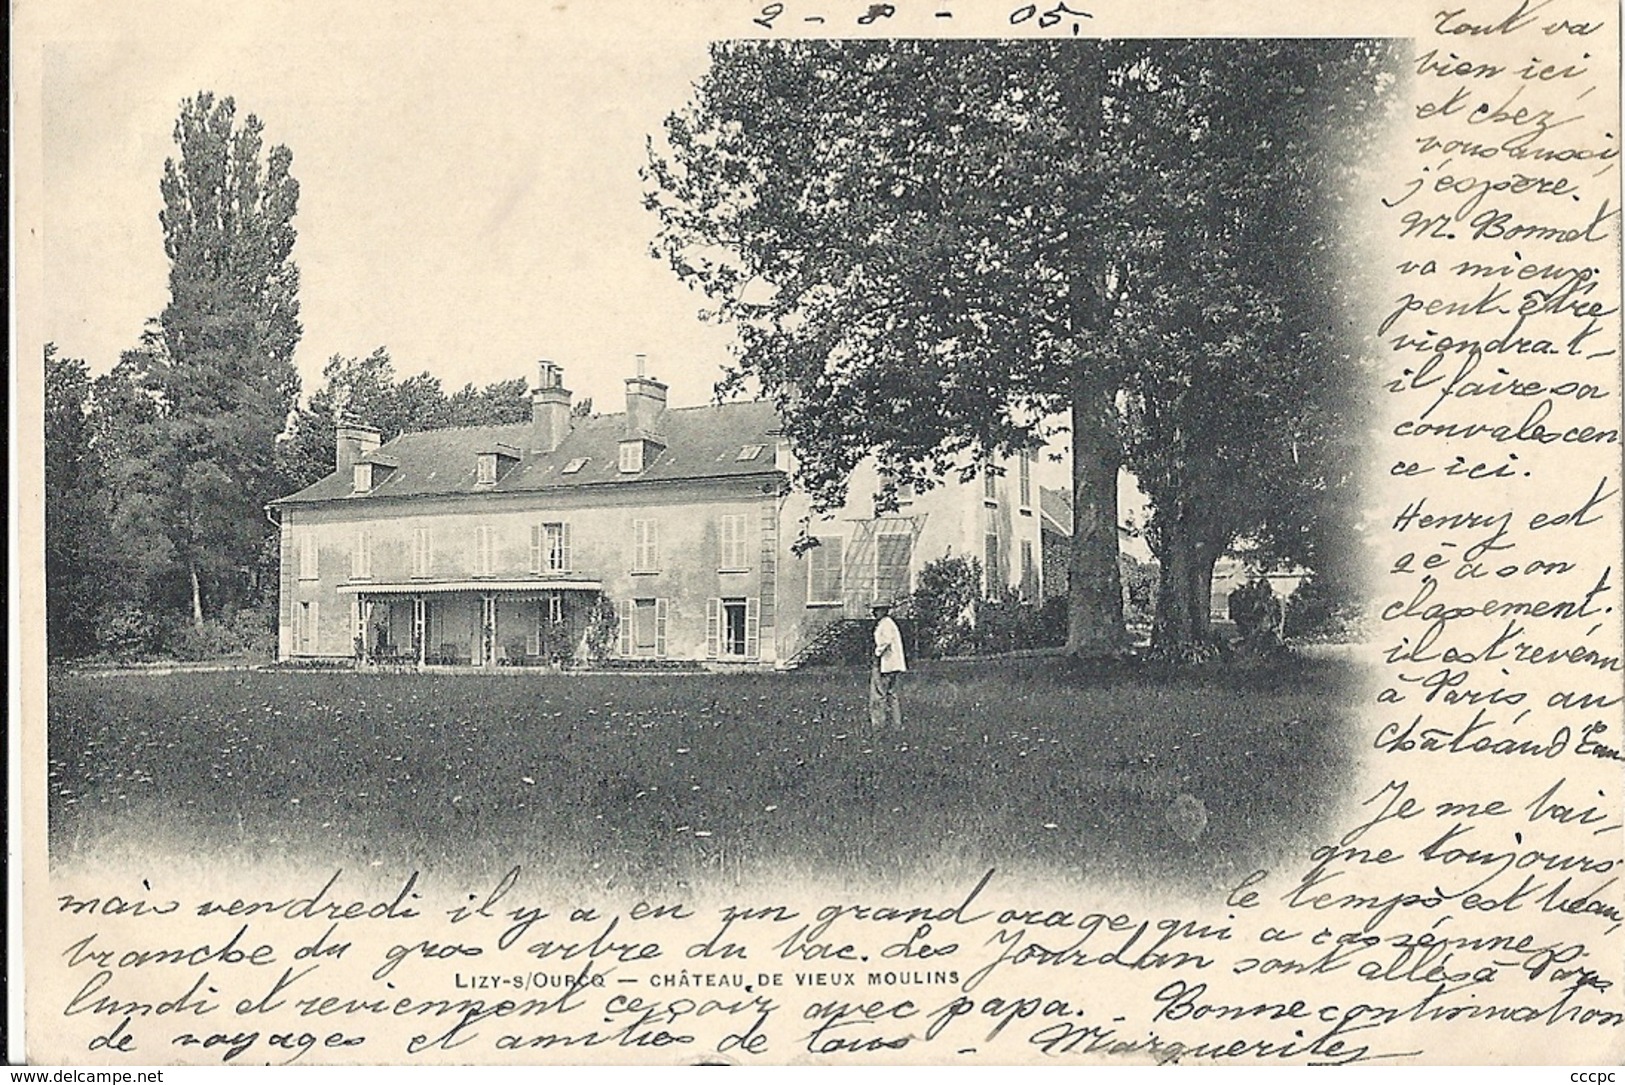 2 - 8 - 05.
Tout va
bien ici,
et chez
vous aussi,
j'espère.
M. Bonnet
va mieux,
peut-être
viendrat-
il faire sa
convalescen
ce ici.
Henry est
2è à son
classement.
il est revenu
à Paris, au
Château d'Eau
Je me bai-
gne toujours
le temps est beau,
mais vendredi il y a eu un grand orage qui a cassé une
branche du gros arbre du bac. Les Jourdan sont allés à Paris
LIZY-S/OURCQ — CHÂTEAU DE VIEUX MOULINS
lundi et reviennent ce soir avec papa. - Bonne continuation
de voyages et amitiés de tous - Marguerite
www.delcampe.net
cccpc